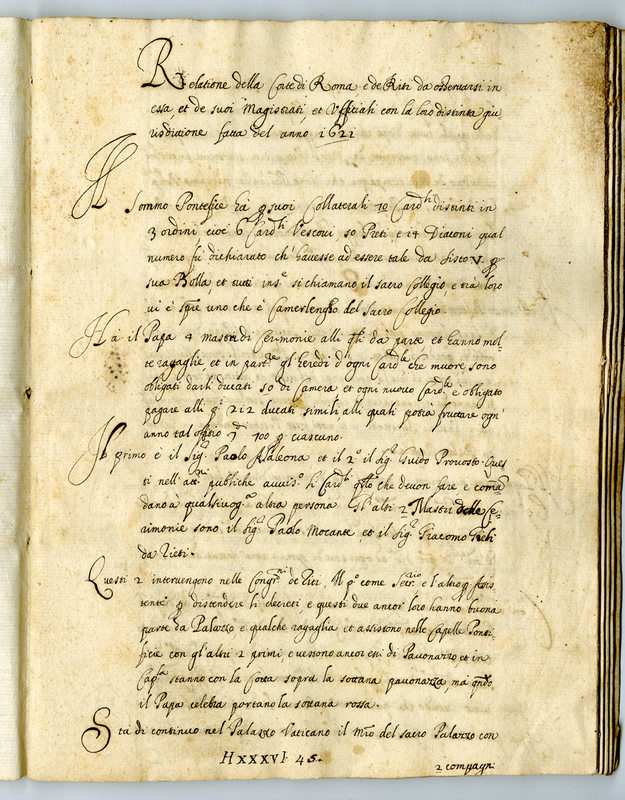 Relatione della Corte di Roma e de Riti da osservarsi in
essa, et de suoi Magistrati, et Vfficiali con la loro distinta giu
risditione fatta del anno 1621
Il Sommo Pontefice hà p suoi Collaterali 70 Card.li distinti in
3 ordini cioè 6 Card.li Vescoui 50 Preti, e 14 Diaconi qual
numero fù dichiarato ch'hauesse ad essere tale da Sisto V. p
sua Bolla, et tutti ins.e si chiamano il sacro Collegio, e tra loro
ui è spre uno che è Camerlengho del Sacro Collegio.
Ha il Papa 4 mastri di Cerimonie alli qli dà parte et hanno mol
te regaglie, et in part.re gl'heredi d'ogni Card.le che muore sono
obligati darli ducati 50 di Camera et ogni nuouo Card.le è obligato
pagare alli 212 ducati simili alli quali potrà fruttare ogn'
anno tal offitio 700 p ciascuno.
Il primo è il Sig.r Paolo Alaleona et il 2.o il Sig.r Guido Prouosto. Ques
ti nell' att.ni publiche auuis.o li Card.li qllo che deuon fare e coman
dano à qualsiuog.a altra persona. Gl'altri 2 Mastri delle Ce-
rimonie sono il Sig.r Paolo Mocante et il Sig.r Giacomo
da Rieti.
Questi 2 interuengono nelle Congr.ni de Riti, Il p.o come Setr.rio e l'altro p Assis
tente p distendere li decreti, e questi due ancor loro hanno buona
parte da Palazzo e qualche regaglia et assistono nelle Capelle Ponti-
ficie con gl'altri 2 primi, e uestono ancor essi di Pauonazzo et in
Cap.la stanno con la Cotta sopra la sottana pauonazza, mà qndo
il Papa celebra portano la sottana rossa.
Stà di continuo nel Palazzo Vaticano il Mro del sacro Palazzo con
HXXXVI 45.
2 compagni